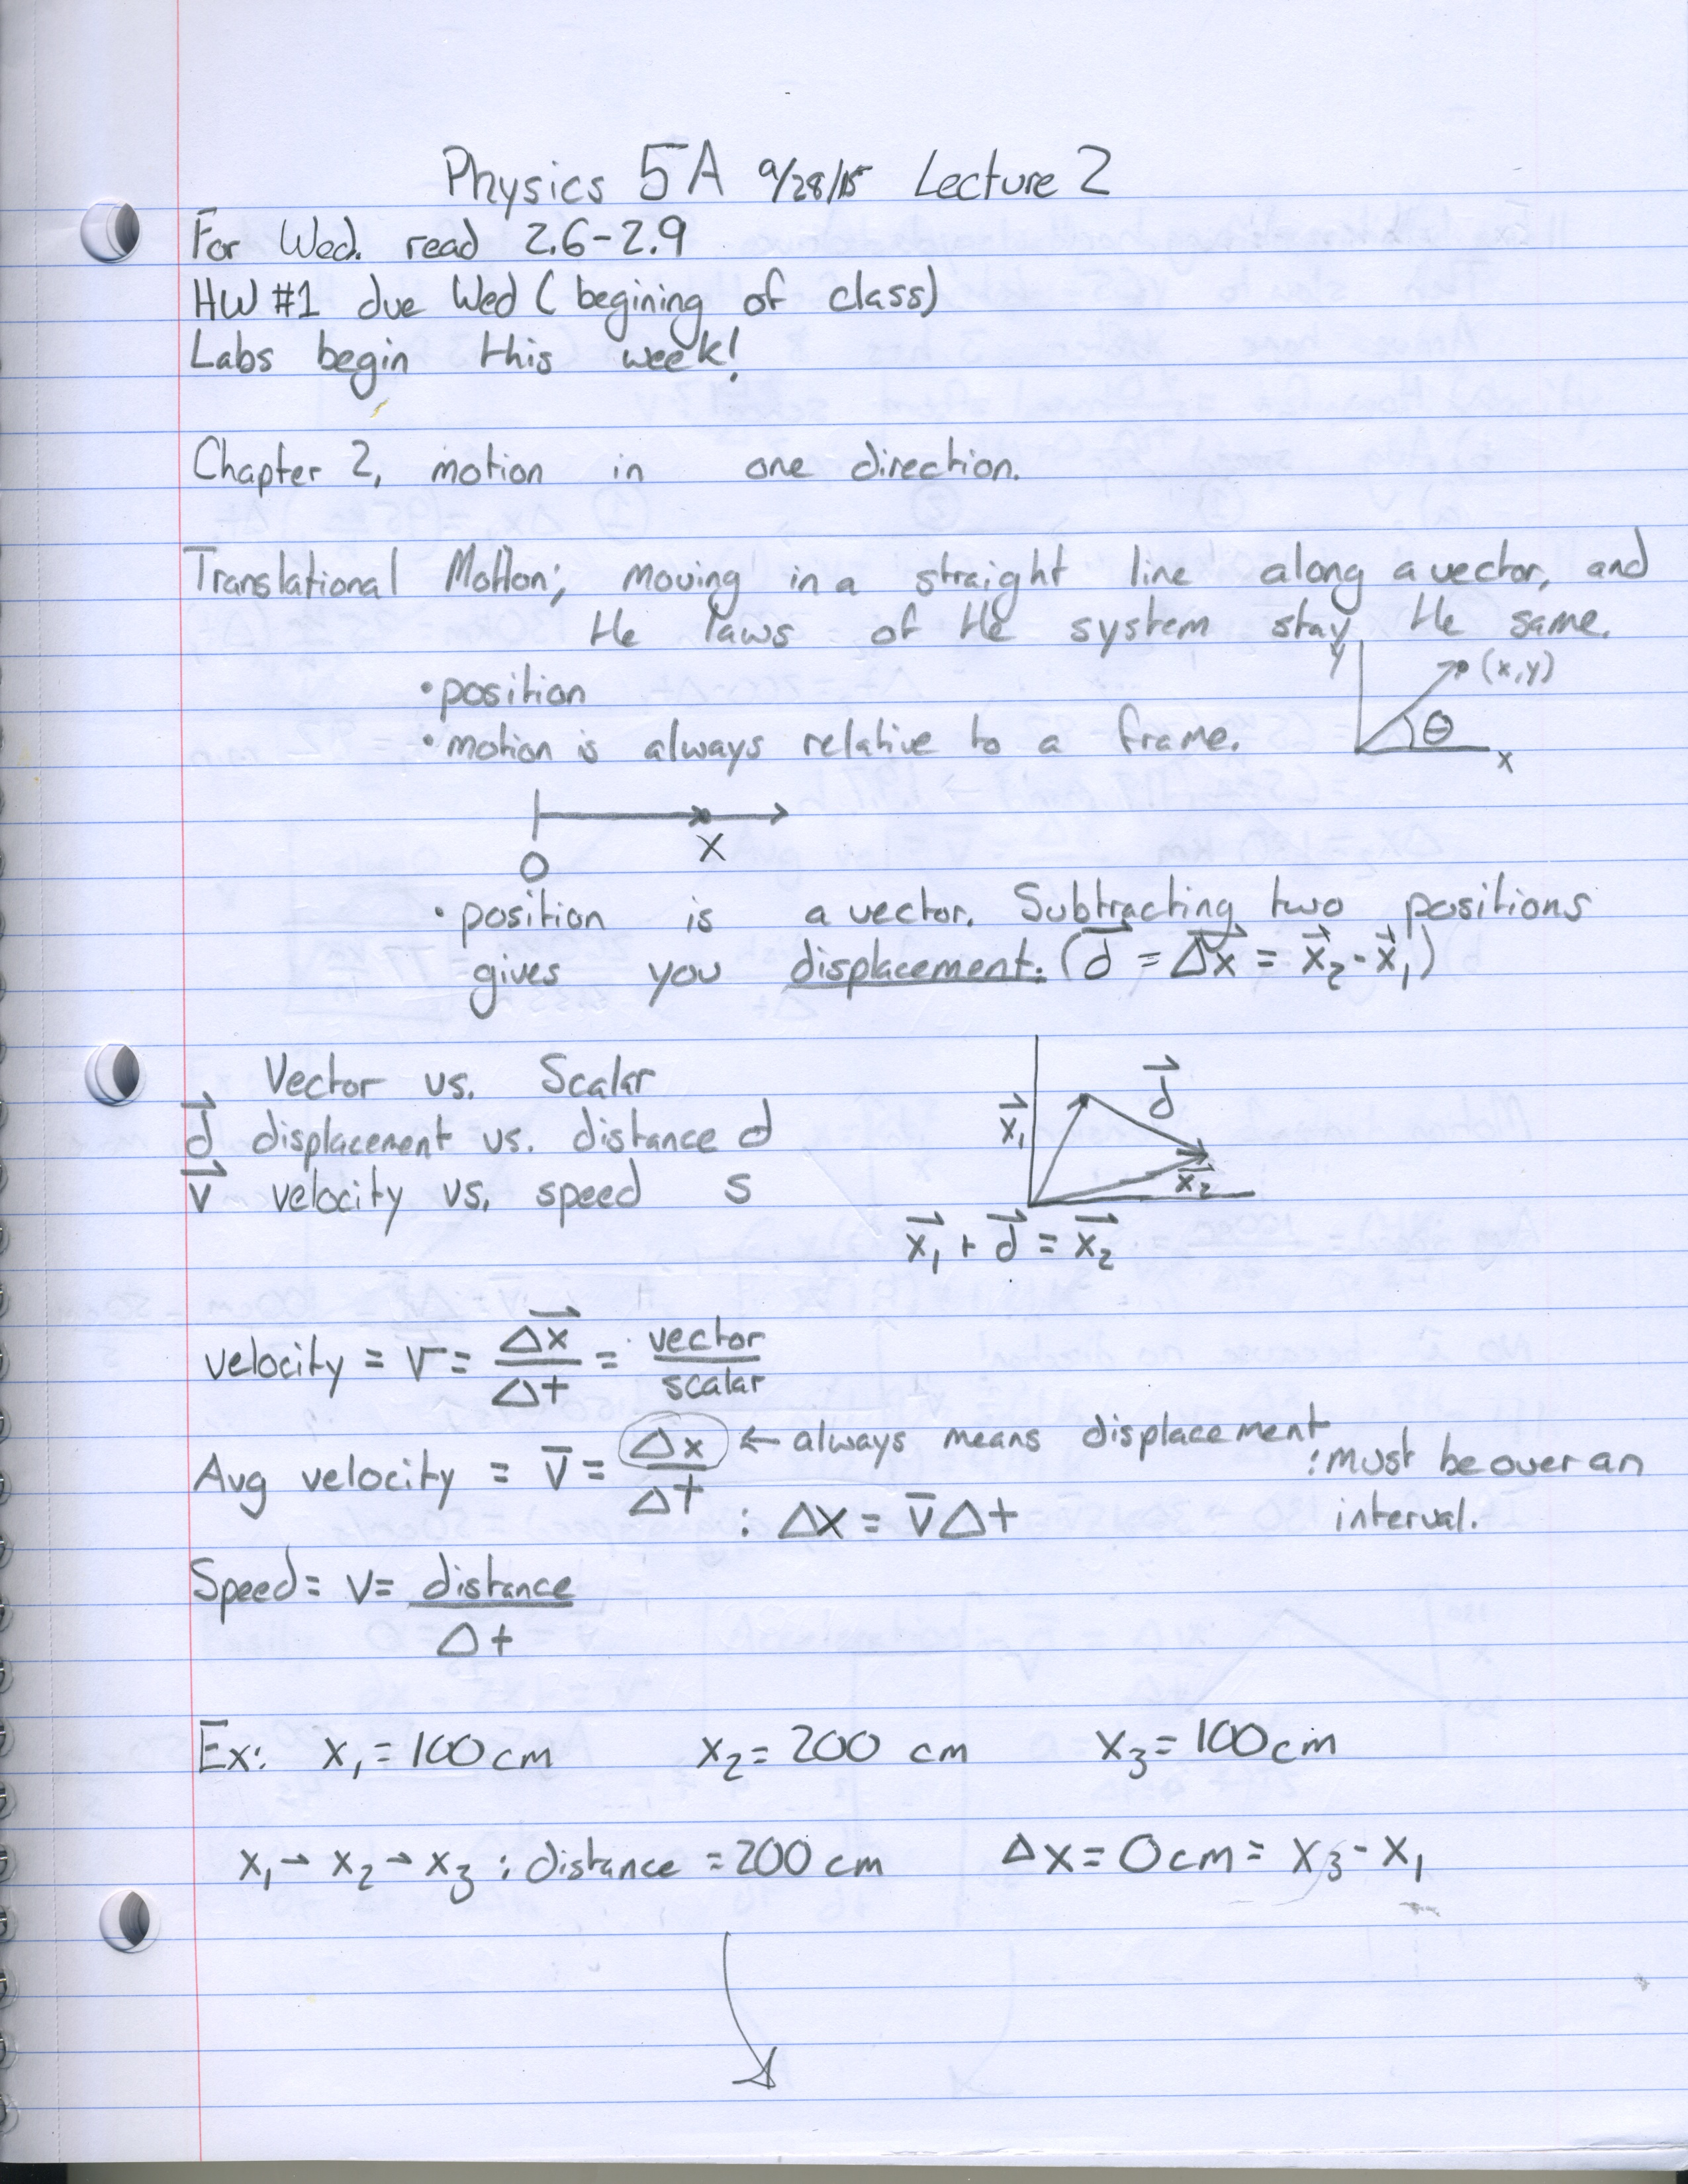 Physics 5A 9/28/15 Lecture 2
For Wed. read 2.6-2.9
HW #1 due Wed (begining of class)
Labs begin this week!
Chapter 2, motion in one direction.
Translational Motion; moving in a straight line along a vector, and
the laws of the system stay the same.
y (x,y)
• position
• motion is always relative to a frame.
θ
x
0 x
• position is a vector. Subtracting two positions
gives you displacement. (d⃗ = Δx⃗ = x⃗₂ - x⃗₁)
Vector vs. Scalar
d⃗ displacement vs. distance d
v⃗ velocity vs. speed s
x⃗₁ d⃗
x⃗₂
x⃗₁ + d⃗ = x⃗₂
velocity = v = Δx⃗/Δt = vector/scalar
Avg velocity = v̅ = Δx/Δt ← always means displacement
: must be over an
interval.
: Δx = v̅Δt
Speed = v = distance/Δt
Ex: x₁ = 100cm x₂ = 200 cm x₃ = 100cm
x₁ → x₂ → x₃ : distance = 200 cm Δx = 0cm = x₃ - x₁